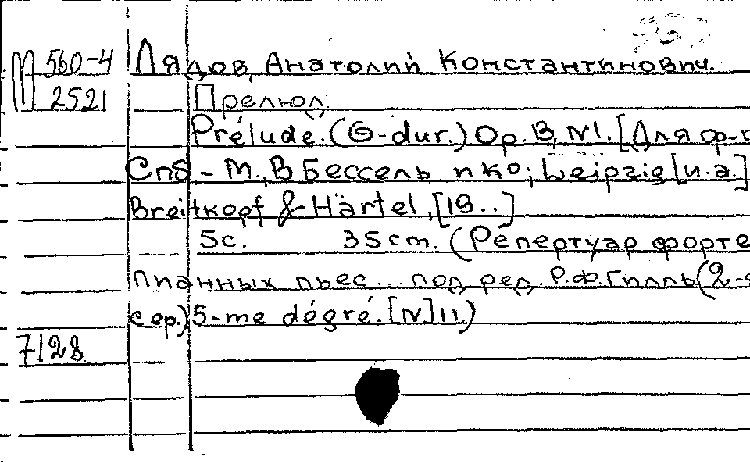 М 560-4 Лядов, Анатолий Константинович.
2521 Прелюд.
Prélude. (G-dur.) Op. 3, N1. [Для ф-п
Спб - М., В Бессель и Ко; Leipzig [u.a.]
Breitkopf & Härtel, [18..]
5с. 35cm. (Репертуар форте
пианных пьес.. под ред. Р.Ф.Гилль (2-я
сер.) 5-me dégré. [N] 11.)
7128